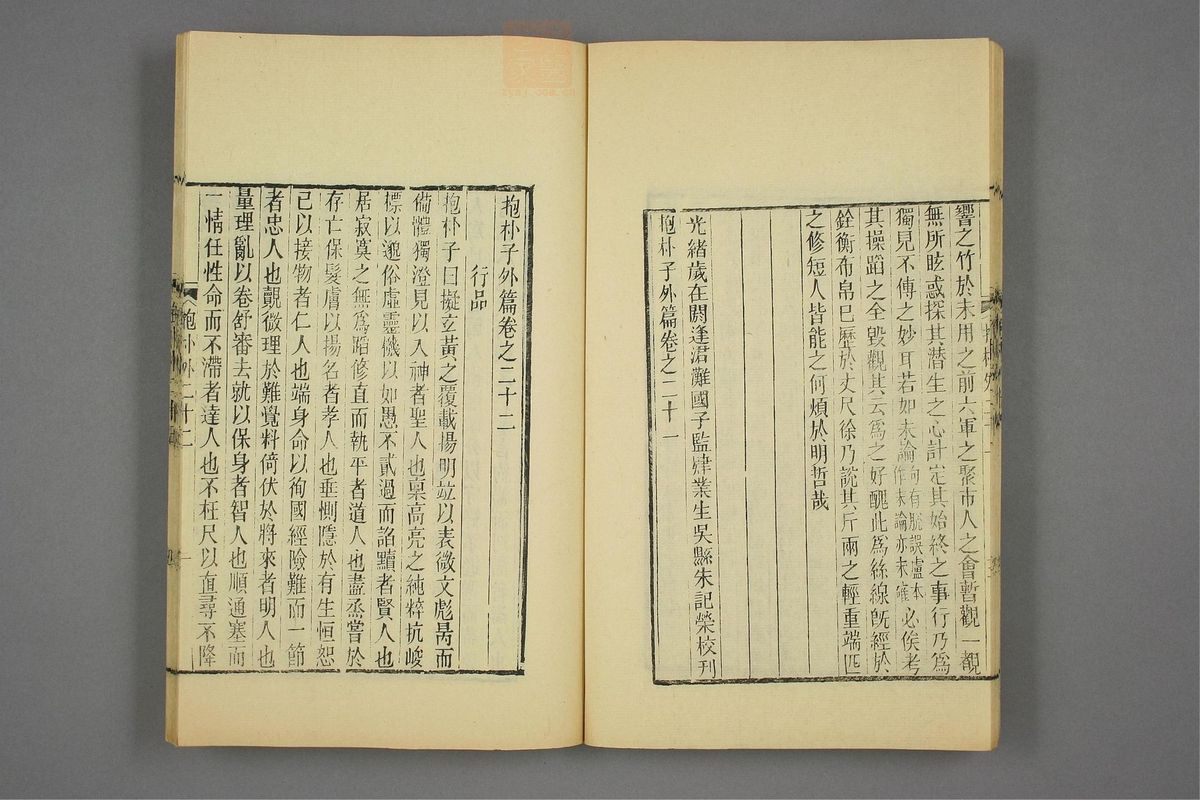 響之竹於未用之前六軍之聚市人之會暫觀一覩
無所眩惑探其潛生之心計定其始終之事行乃爲
獨見不傳之妙耳若如未論句有脫誤盧本作末論亦未確必俟考
其操蹈之全毀觀其云爲之好醜此爲絲線旣經於
銓衡布帛巳歷於丈尺徐乃說其斤兩之輕重端匹
之修短人皆能之何煩於明哲哉
光緒歲在閼逢涒灘國子監肄業生吳縣朱記榮校刋
抱朴子外篇卷之二十一
抱朴子外篇卷之二十二
行品
抱朴子曰擬玄黃之覆載揚明竝以表微文彪昺而
備體獨澄見以入神者聖人也稟高亮之純粹抗峻
標以邈俗虛靈機以如愚不貳過而諂黷者賢人也
居寂寞之無爲蹈修直而執平者道人也盡烝嘗於
存亡保髮膚以揚名者孝人也垂惻隱於有生恒恕
己以接物者仁人也端身命以徇國經險難而一節
者忠人也覿微理於難覺料倚伏於將來者明人也
量理亂以卷舒審去就以保身者智人也順通塞而
一情任性命而不滯者達人也不枉尺以直尋不降
抱朴外二十二
一